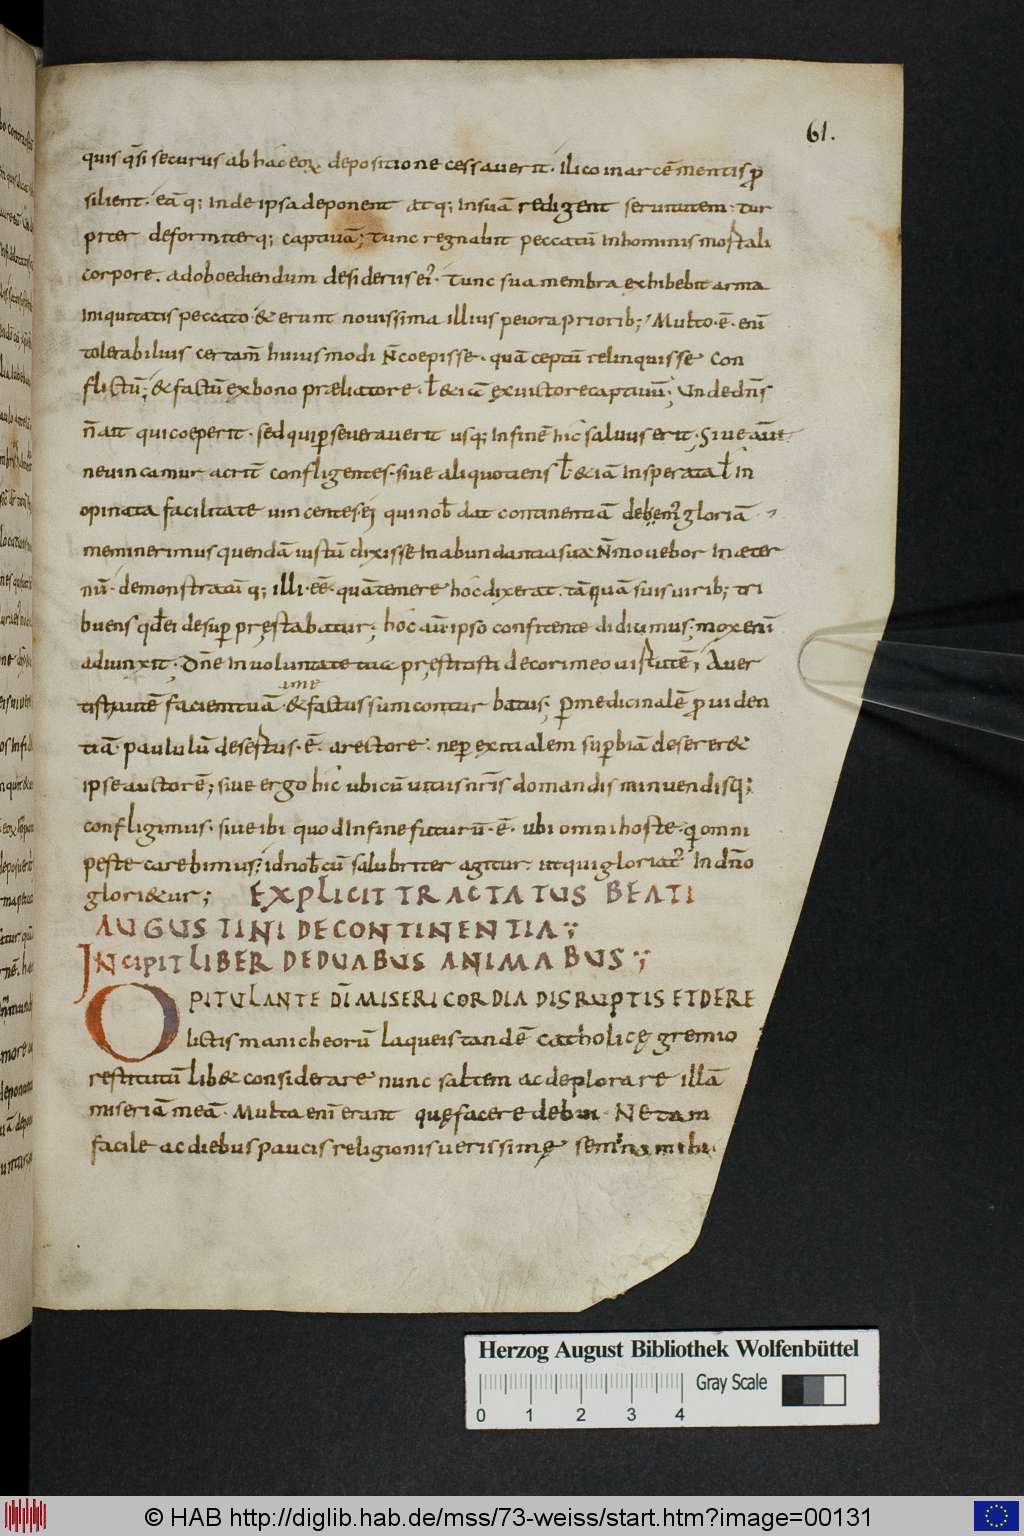 61.
quis q̄si securus ab hac eoꝝ depositione cessauerit· ilico in arcē mentis ꝓ
silient· eāq; inde ipsa deponent atq; in suā redigent seruitutem· tur
piter deformiterq; captiuā; tunc regnabit peccatū in hominis mortali
corpore· ad oboediendum desideriis ei᾽· tunc sua membra exhibebit arma
iniquitatis peccato· & erunt nouissima illius peiora priorib; Multo· ē· enī
tolerabilius certam̄ huius modi n̄ coepisse· quā ceptū relinquisse con
flictū; & factū ex bono præliatore· ł & iā ex uictore captiuū; Unde dn̄s
n̄ ait qui coeperit· sed qui ꝑseuerauerit usq; in finē hic saluus erit; Siue aūt
ne uincamur acrit̄ confligentes· siue aliquotiens ł & iā insperata ł in
opinata facilitate uincentes ei qui nob̄ dat continentiā dem᾽ gloriā
meminerimus quendā iustū dixisse in abundantia sua n̄ mouebor in æter
nū· demonstratū q; illi· eē· quā temere hoc dixerat· tā quā suis uirib; tri
buens qđ ei desuꝑ pręstabatur; hoc aūt ipso confitente didiumus; mox enī
adiunxit· Dn̄e in uoluntate tua pręstitisti decori meo uirtutē; Auer
tisti autē faciem tuā & factus sum conturbatus; ꝑ medicinalē ꝓuiden
a me
tiā· paululū desertus· ē· a rectore· ne ꝑ exitialem suꝑbiā deserer&
ipse auctorē; siue ergo hic ubi cū uitiis nr̄is domandis minuendisq;
confligimus· siue ibi quod in fine futurū· ē· ubi omni hoste· q̄ omni
peste carebimus; id nob̄cū salubriter agitur· ut qui gloriat᾽ in dn̄o
glori&ur; EXPLICIT TRACTATUS BEATI
AUGUSTINI DE CONTINENTIA
INCIPIT LIBER DE DUABUS ANIMABUS
OPITULANTE DĪ MISERICORDIA DISRUPTIS ET DERE
lictis manicheorū laqueis tandē catholicę gremio
restitutū lib& considerare nunc saltem ac deplorare illā
miseriā meā· Multa enī erant quę facere debui· Ne tam
facile ac diebus paucis religionis uerissimę semina mihi
Herzog August Bibliothek Wolfenbüttel
0 1 2 3 4 Gray Scale
© HAB http://diglib.hab.de/mss/73-weiss/start.htm?image=00131